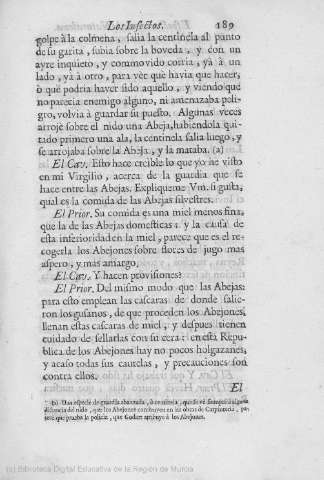 Los Insectos. 189
golpe à la colmena, salia la centinela al punto
de su garita, subia sobre la boveda, y con un
ayre inquieto, y commovido corria, yà à un
lado, yà à otro, para vèr què havia que hacer,
ò què podria haver sido aquello, y viendo que
no parecia enemigo alguno, ni amenazaba peli-
gro, volvia à guardar su puesto. Algunas veces
arrojè sobre el nido una Abeja, haviendola qui-
tado primero una ala, la centinela salia luego, y
se arrojaba sobre la Abeja, y la mataba. (a)
El Cav. Esto hace creible lo que yo he visto
en mi Virgilio, acerca de la guardia que se
hace entre las Abejas. Expliqueme Vm. si gusta,
qual es la comida de las Abejas silvestres.
El Prior. Su comida es una miel menos fina,
que la de las Abejas domesticas: y la causa de
esta inferioridad en la miel, parece que es el re-
cogerla los Abejones sobre flores de jugo mas
aspero, y mas amargo.
El Cav. Y hacen provisiones?
El Prior. Del mismo modo que las Abejas:
para esto emplean las cascaras de donde salie-
ron los gusanos, de que proceden los Abejones,
llenan estas cascaras de miel, y despues tienen
cuidado de sellarlas con su cera: en esta Repu-
blica de los Abejones hay no pocos holgazanes,
y acaso todas sus cautelas, y precauciones son
contra ellos.
El
Una especie de guardia abanzada, ò centinela,
distancia del nido, que los Abejones en las obras de Carpinteria, pa-
rece que prueba la policia, que Godart atribuye à los Abejones.
(c) Biblioteca Digital Educativa de la Región de Murcia